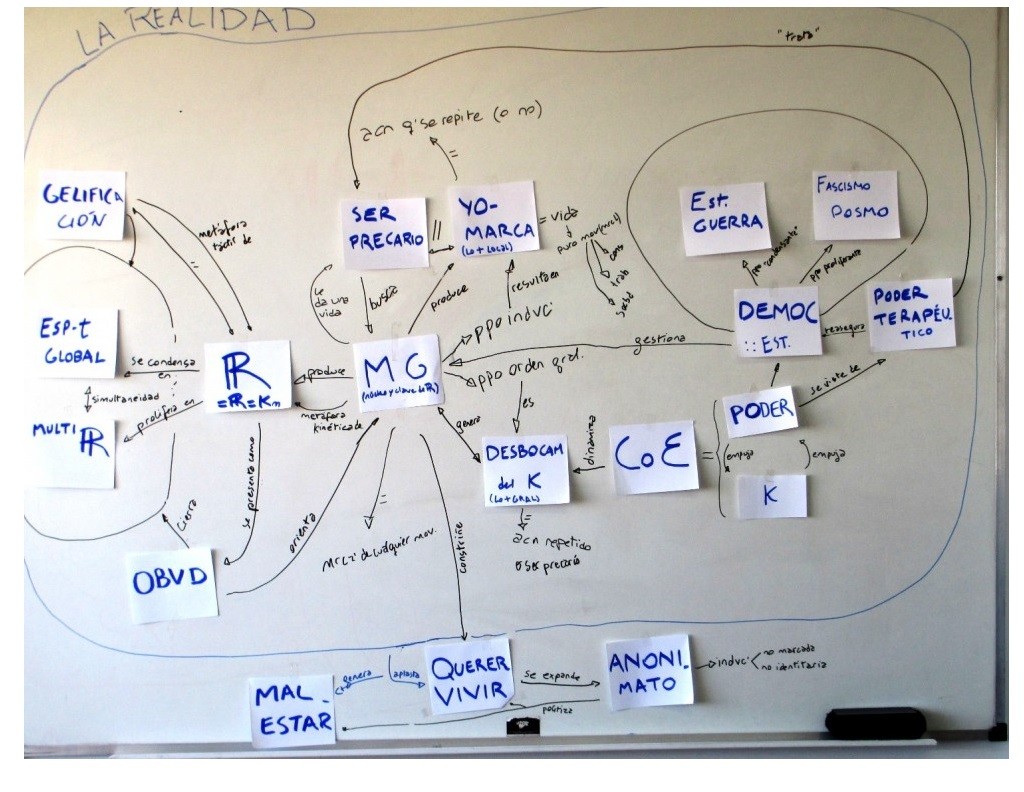 LA REALIDAD
"trata"
acn q' se repite (o no)
=
GELIFICA
CIÓN
metáfora
táctil de
=
SER
PRECARIO
//
YO-
MARCA
(lo + local)
= vida
puro mov (mrcl)
cons
trab
Est.
GUERRA
FASCISMO
POSMO
ppo "condensante"
ppo proliferante
le
da una
vida
busca
produce
resulta en
ppo induvi
ESP-t
GLOBAL
simultaneidad
MULTI ℝ
se condensa
en
prolifera en
ℝ
=ℝ=Km
produce
metáfora
kinética de
MG
(núcleo y clave de ℝ)
ppo orden gral.
es
gestiona
DEMOC
:: EST.
reasegura
PODER
TERAPÉU
TICO
se viste de
genera
DESBOCAM
del K
(lo + GRAL)
dinamiza
CoE
=
PODER
empuja
empuja
K
=
acn repetido
o ser precario
cierra
se presenta como
orienta
=
Mrcl de cualquier mov.
constriñe
OBVD
genera
aplasta
QUERER
VIVIR
se expande
politiza
ANONI-
MATO
induvi
no marcada
no identitaria
MAL-
ESTAR